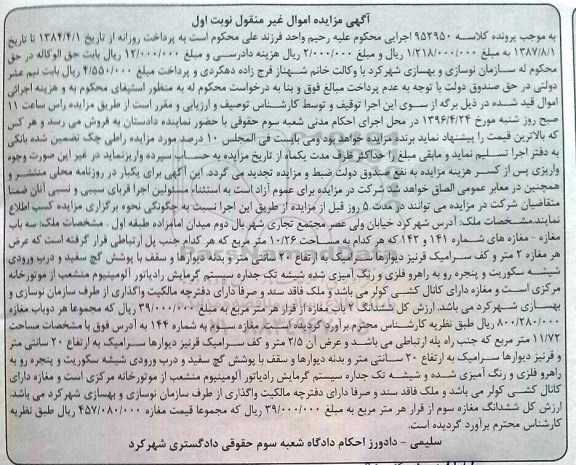 آگهی مزایده اموال غیر منقول نوبت اول
به موجب پرونده کلاسه ۹۵۲۹۵۰ اجرایی محکوم علیه رحیم واحد فرزند علی محکوم است به پرداخت روزانه از تاریخ ۱۳۸۴/۴/۱ تا تاریخ
۱۳۸۷/۸/۱ به مبلغ ۱/۲۱۸/۰۰۰/۰۰۰ ریال و مبلغ ۲/۰۰۰/۰۰۰ ریال هزینه دادرسی و مبلغ ۱۲/۰۰۰/۰۰۰ ریال بابت حق الوکاله در حق
محکوم له سازمان نوسازی و بهسازی شهرکرد با وکالت خانم شهناز فرج زاده دهکردی و پرداخت مبلغ ۴/۵۵۰/۰۰۰ ریال بابت نیم عشر
دولتی در حق صندوق دولت با توجه به عدم پرداخت مبالغ فوق و بنا به درخواست محکوم له به منظور استیفای محکوم به و هزینه اجرائی
اموال قید شده در ذیل برگه از سوی این اجرا توقیف و توسط کارشناس توصیف و ارزیابی و مقرر است از طریق مزایده راس ساعت ۱۱
صبح روز شنبه مورخ ۱۳۹۶/۴/۲۴ در محل اجرای احکام مدنی شعبه سوم حقوقی با حضور نماینده دادستان به فروش می رسد و هر کس
که بالاترین قیمت را پیشنهاد نماید برنده مزایده خواهد بود ومی بایست فی المجلس ۱۰ درصد مورد مزایده راطی چک تضمین شده بانکی
به دفتر اجرا تسلیم نماید و مابقی مبلغ را حداکثر ظرف مدت یکماه از تاریخ مزایده به حساب سپرده واریزنماید در غیر این صورت وجوه
واریزی پس از کسر هزینه مزایده به نفع صندوق دولت ضبط و مزایده تجدید می گردد. این آگهی برای یکبار در روزنامه محلی منتشر و
همچنین در معابر عمومی الصاق خواهد شد شرکت در مزایده برای عموم آزاد است به استثناء مسئولین اجرا قربای سببی و نسبی آنان ضمنا
متقاضیان شرکت در مزایده می توانند در مدت ۵ روز قبل از مزایده از طریق این اجرا نسبت به چگونگی نحوه برگزاری مزایده کسب اطلاع
نمایند.مشخصات ملک: آدرس شهرکرد خیابان ولی عصر مجتمع تجاری شهریال دوم میدان امامزاده طبقه اول . مشخصات ملک: سه باب
مغازه - مغازه های شماره ۱۴۱ و ۱۴۲ که هر کدام به مساحت ۱۰/۲۶ متر مربع که هر کدام جنب پل ارتباطی قرار گرفته است که عرض
هر مغازه ۲ متر و کف سرامیک قرنیز دیوارها سرامیک به ارتفاع ۲۰ سانتی متر و بدنه دیوارها و سقف با پوشش گچ سفید و درب ورودی
شیشه سکوریت و پنجره رو به راهرو فلزی و رنگ آمیزی شده شیشه تک جداره سیستم گرمایش رادیاتور آلومینیوم منشعب از موتورخانه
مرکزی است و مغازه دارای کانال کشی کولر می باشد و ملک فاقد سند و صرفا دارای دفترچه مالکیت واگذاری از طرف سازمان نوسازی و
بهسازی شهرکرد می باشد. ارزش کل ششدانگ ۲ باب مغازه از قرار هر متر مربع به مبلغ ۳۹/۰۰۰/۰۰۰ ریال که مجموعا هر دوباب مغازه
۸۰۰/۲۸۰/۰۰۰ ریال طبق نظریه کارشناس محترم برآورد گردیده است. مغازه سوم به شماره ۱۴۴ به آدرس فوق با مشخصات مساحت
۱۱/۷۲ متر مربع که جنب راه پله ارتباطی می باشد و عرض آن ۲/۵ متر و کف سرامیک قرنیز دیوارها سرامیک به ارتفاع ۲۰ سانتی متر
و قرنیز دیوارها سرامیک به ارتفاع ۲۰ سانتی متر و بدنه دیوارها و سقف با پوشش گچ سفید و درب ورودی شیشه سکوریت و پنجره رو به
راهرو فلزی و رنگ آمیزی شده و شیشه تک جداره سیستم گرمایش رادیاتور آلومینیوم منشعب از موتورخانه مرکزی است و مغازه دارای
کانال کشی کولر می باشد و ملک فاقد سند و صرفا دارای دفترچه مالکیت واگذاری از طرف سازمان نوسازی و بهسازی شهرکرد می باشد.
ارزش کل ششدانگ مغازه سوم از قرار هر متر مربع به مبلغ ۳۹/۰۰۰/۰۰۰ ریال که مجموعا قیمت مغازه ۴۵۷/۰۸۰/۰۰۰ ریال طبق نظریه
کارشناس محترم برآورد گردیده است.
سلیمی - دادورز احکام دادگاه شعبه سوم حقوقی دادگستری شهرکرد